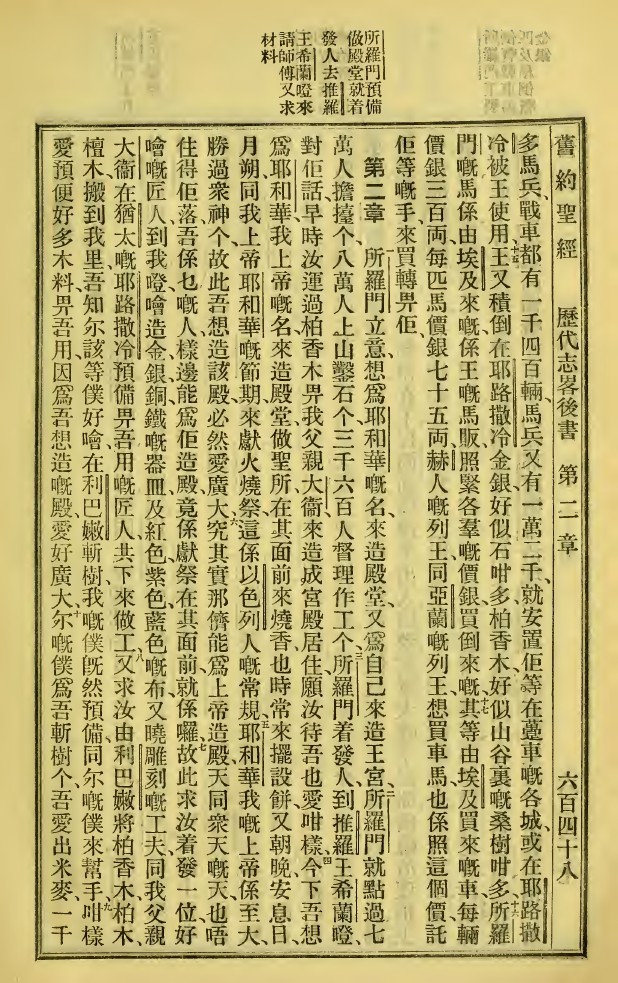 所羅門預備
做殿堂就着
發人去推羅
王希蘭噔來
請師傅又求
材料
舊約聖經　歷代志畧後書　第二章　六百四十八
多馬兵、戰車都有一千四百輛、馬兵又有一萬二千、就安置佢等在躉車嘅各城、或在耶路撒
冷被王使用、十五王又積倒在耶路撒冷金銀好似石咁多、柏香木好似山谷裏嘅桑樹咁多、十六所羅
門嘅馬係由埃及來嘅、係王嘅馬販照緊各羣嘅價銀買倒來嘅、十七其等由埃及買來嘅車、每輛
價銀三百両、每匹馬價銀七十五両、赫人嘅列王同亞蘭嘅列王想買車馬、也係照這個價託
佢等嘅手來買轉畀佢、
第二章　所羅門立意想爲耶和華嘅名、來造殿堂、又爲自己來造王宮、二所羅門就點過七
萬人擔擡个、八萬人上山鑿石个、三千六百人督理作工个、三所羅門着發人到推羅王希蘭噔、
對佢話、早時汝運過柏香木畀我父親大衞、來造成宮殿居住、願汝待吾也愛咁樣、四今下吾想
爲耶和華我上帝嘅名來造殿堂、做聖所、在其面前來燒香、也時常來擺設餅、又朝晚、安息日、
月朔、同我上帝耶和華嘅節期、來獻火燒祭、這係以色列人嘅常規、五耶和華我嘅上帝係至大、
勝過衆神个、故此吾想造該殿必然愛廣大、六究其實那儕能爲上帝造殿、天同衆天嘅天也唔
住得佢落、吾係乜嘅人樣邊能爲佢造殿、竟係獻祭在其面前就係囉、七故此求汝着發一位好
噲嘅匠人到我噔、噲造金銀銅鐵嘅器皿、及紅色紫色藍色嘅布、又曉雕刻嘅工夫、同我父親
大衞在猶太嘅耶路撒冷預備畀吾用嘅匠人、共下來做工、八又求汝由利巴嫩將柏香木、柏木、
檀木、搬到我里、吾知尔該等僕好噲在利巴嫩斬樹、我嘅僕旣然預備、同尔嘅僕來幫手、九咁樣
愛預便好多木料、畀吾用、因爲吾想造嘅殿、愛好廣大、十尔嘅僕爲吾斬樹个、吾愛出米麥一千